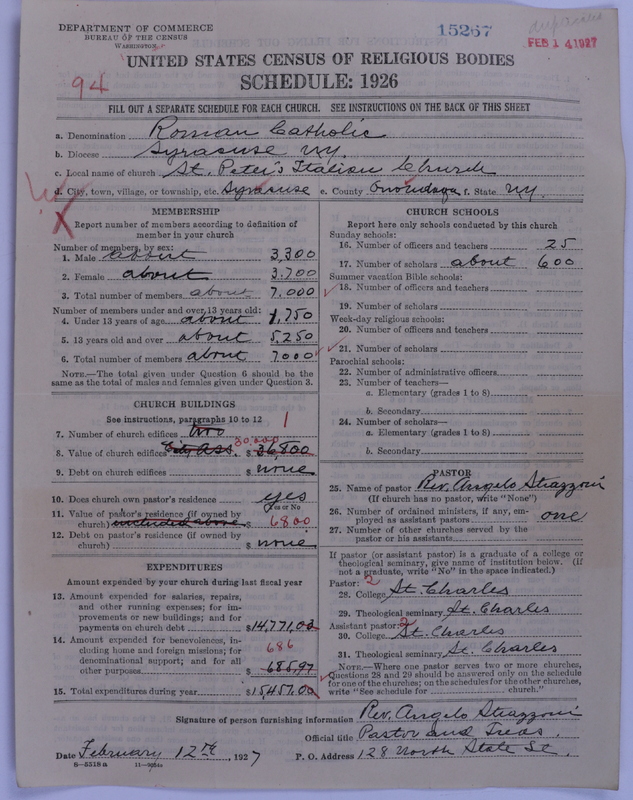 DEPARTMENT OF COMMERCE
BUREAU OF THE CENSUS
WASHINGTON
15267
duplicate
FEB 14 1927
94
UNITED STATES CENSUS OF RELIGIOUS BODIES
SCHEDULE: 1926
FILL OUT A SEPARATE SCHEDULE FOR EACH CHURCH. SEE INSTRUCTIONS ON THE BACK OF THIS SHEET
a. Denomination Roman Catholic
b. Diocese Syracuse NY
c. Local name of church St. Peter's Italian Church
d. City, town, village, or township, etc. Syracuse e. County Onondaga f. State NY.
X
MEMBERSHIP
Report number of members according to definition of
member in your church
Number of members, by sex:
1. Male about 3,300
2. Female about 3.700
3. Total number of members about 7.000
Number of members under and over 13 years old:
4. Under 13 years of age about 1,750
5. 13 years old and over about 5.250
6. Total number of members about 7000
NOTE.—The total given under Question 6 should be the
same as the total of males and females given under Question 3.
CHURCH BUILDINGS
See instructions, paragraphs 10 to 12
7. Number of church edifices two 1
30,000
8. Value of church edifices $ 36,800
9. Debt on church edifices $ none
10. Does church own pastor's residence yes
Yes or No
11. Value of pastor's residence (if owned by
church) included above $ 6800
12. Debt on pastor's residence (if owned by
church) $ none
EXPENDITURES
Amount expended by your church during last fiscal year
13. Amount expended for salaries, repairs,
and other running expenses; for im-
provements or new buildings; and for
payments on church debt $14,771,03
14. Amount expended for benevolences, in-
cluding home and foreign missions; for
denominational support; and for all
686
other purposes $ 685,97
15. Total expenditures during year $15,457.00
CHURCH SCHOOLS
Report here only schools conducted by this church
Sunday schools:
16. Number of officers and teachers 25
17. Number of scholars about 600
Summer vacation Bible schools:
18. Number of officers and teachers
19. Number of scholars
Week-day religious schools:
20. Number of officers and teachers
21. Number of scholars
Parochial schools:
22. Number of administrative officers
23. Number of teachers—
a. Elementary (grades 1 to 8)
b. Secondary
24. Number of scholars—
a. Elementary (grades 1 to 8)
b. Secondary
PASTOR
25. Name of pastor Rev. Angelo Strazzoni
(If church has no pastor, write "None")
26. Number of ordained ministers, if any, em-
ployed as assistant pastors one
27. Number of other churches served by the
pastor or his assistants
If pastor (or assistant pastor) is a graduate of a college or
theological seminary, give name of institution below. (If
not a graduate, write "No" in the space indicated.)
Pastor: 2
28. College St. Charles
29. Theological seminary St. Charles
Assistant pastor: 2
30. College St. Charles
31. Theological seminary St. Charles
NOTE.—Where one pastor serves two or more churches,
Questions 28 and 29 should be answered only on the schedule
for one of the churches; on the schedules for the other churches,
write "See schedule for church."
Signature of person furnishing information Rev. Angelo Strazzoni
Official title Pastor and Treas.
Date February 12th, 1927 P. O. Address 128 North State St.
8—5518a 11—9054a